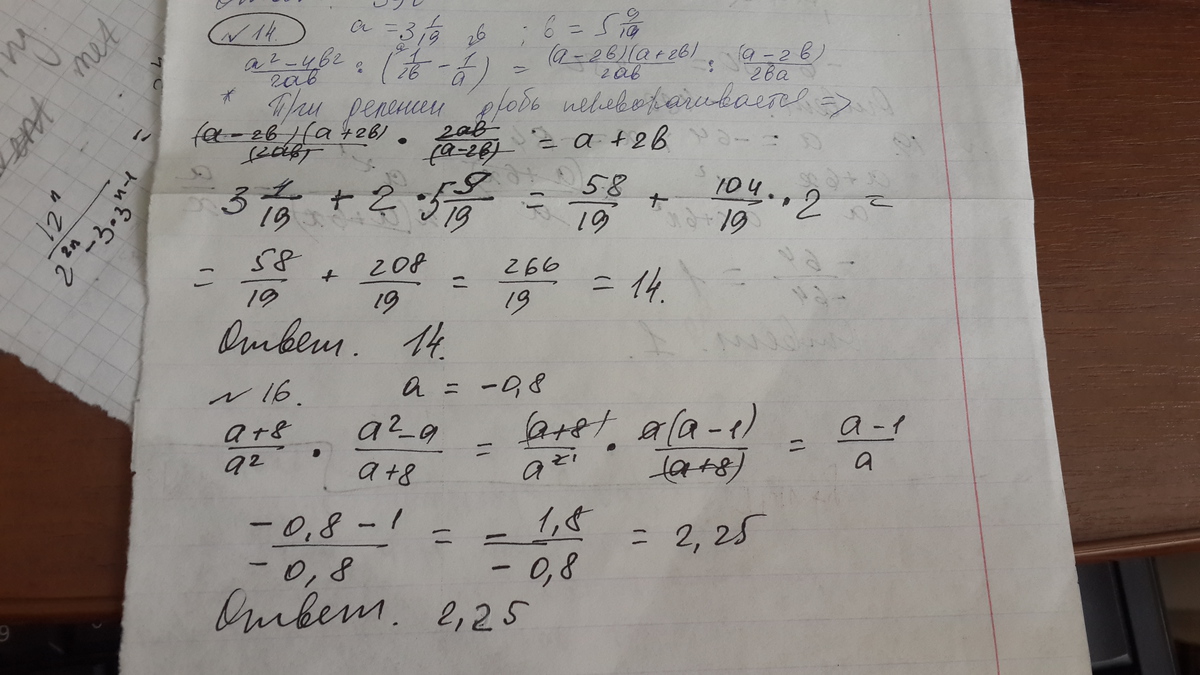 Ответ. 390
№14. a = 3 1/19 ; b = 5 9/19
(a² - 4b²)/(2ab) : (1/(2b) - 1/a) = ((a-2b)(a+2b))/(2ab) : (a-2b)/(2ba)
* При делении дробь переворачивается =>
((a-2b)(a+2b))/(2ab) · (2ab)/(a-2b) = a+2b
3 1/19 + 2 · 5 9/19 = 58/19 + 104/19 · 2 =
= 58/19 + 208/19 = 266/19 = 14.
Ответ. 14.
№16. a = -0,8
(a+8)/a² · (a²-a)/(a+8) = (a+8)/a² · a(a-1)/(a+8) = (a-1)/a
(-0,8-1)/(-0,8) = (-1,8)/(-0,8) = 2,25
Ответ. 2,25
12ⁿ/(2²ⁿ - 3·3ⁿ⁻¹
нет